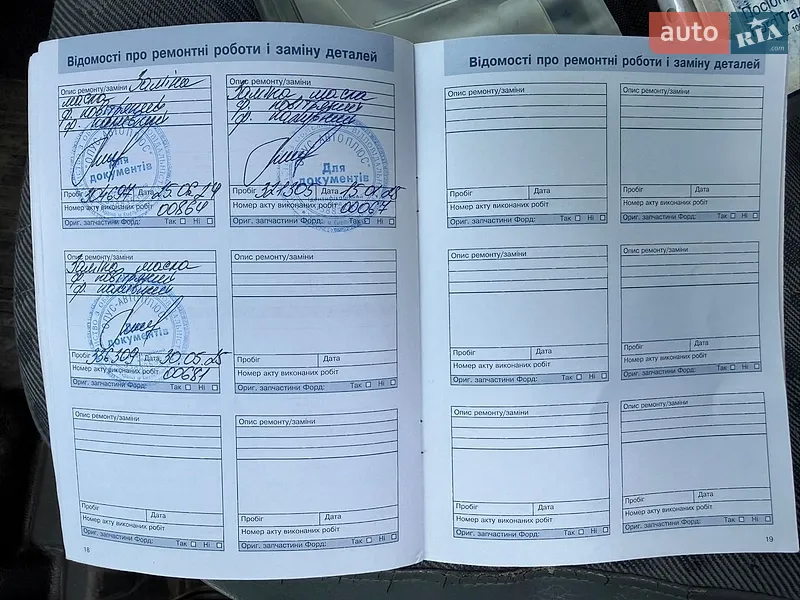 Doctor
Tra
auto RIA .com
Відомості про ремонтні роботи і заміну деталей
Опис ремонту/заміни Заміна
масла
ф. повітряний
ф. паливний
Для
документів
Пробіг 304697 Дата 25.02.14
Номер акту виконаних робіт 00864
Ориг. запчастини Форд: Так Ні
Опис ремонту/заміни
Заміна масла
ф. повітряний
ф. паливний
"ОПУС-АВТОПЛЮС"
Для
документів
Пробіг 321305 Дата
Номер акту виконаних робіт 00067
Ориг. запчастини Форд: Так Ні
Опис ремонту/заміни
Заміна масла
ф. повітряний
ф. паливний
"ОПУС-АВТОПЛЮС"
документів
Пробіг 336309 Дата 30.05.15
Номер акту виконаних робіт 00681
Ориг. запчастини Форд: Так Ні
Опис ремонту/заміни
Пробіг Дата
Номер акту виконаних робіт
Ориг. запчастини Форд: Так Ні
Опис ремонту/заміни
Пробіг Дата
Номер акту виконаних робіт
Ориг. запчастини Форд: Так Ні
Опис ремонту/заміни
Пробіг Дата
Номер акту виконаних робіт
Ориг. запчастини Форд: Так Ні
18
Відомості про ремонтні роботи і заміну деталей
Опис ремонту/заміни
Пробіг Дата
Номер акту виконаних робіт
Ориг. запчастини Форд: Так Ні
Опис ремонту/заміни
Пробіг Дата
Номер акту виконаних робіт
Ориг. запчастини Форд: Так Ні
Опис ремонту/заміни
Пробіг Дата
Номер акту виконаних робіт
Ориг. запчастини Форд: Так Ні
Опис ремонту/заміни
Пробіг Дата
Номер акту виконаних робіт
Ориг. запчастини Форд: Так Ні
Опис ремонту/заміни
Пробіг Дата
Номер акту виконаних робіт
Ориг. запчастини Форд: Так Ні
Опис ремонту/заміни
Пробіг Дата
Номер акту виконаних робіт
Ориг. запчастини Форд: Так Ні
19